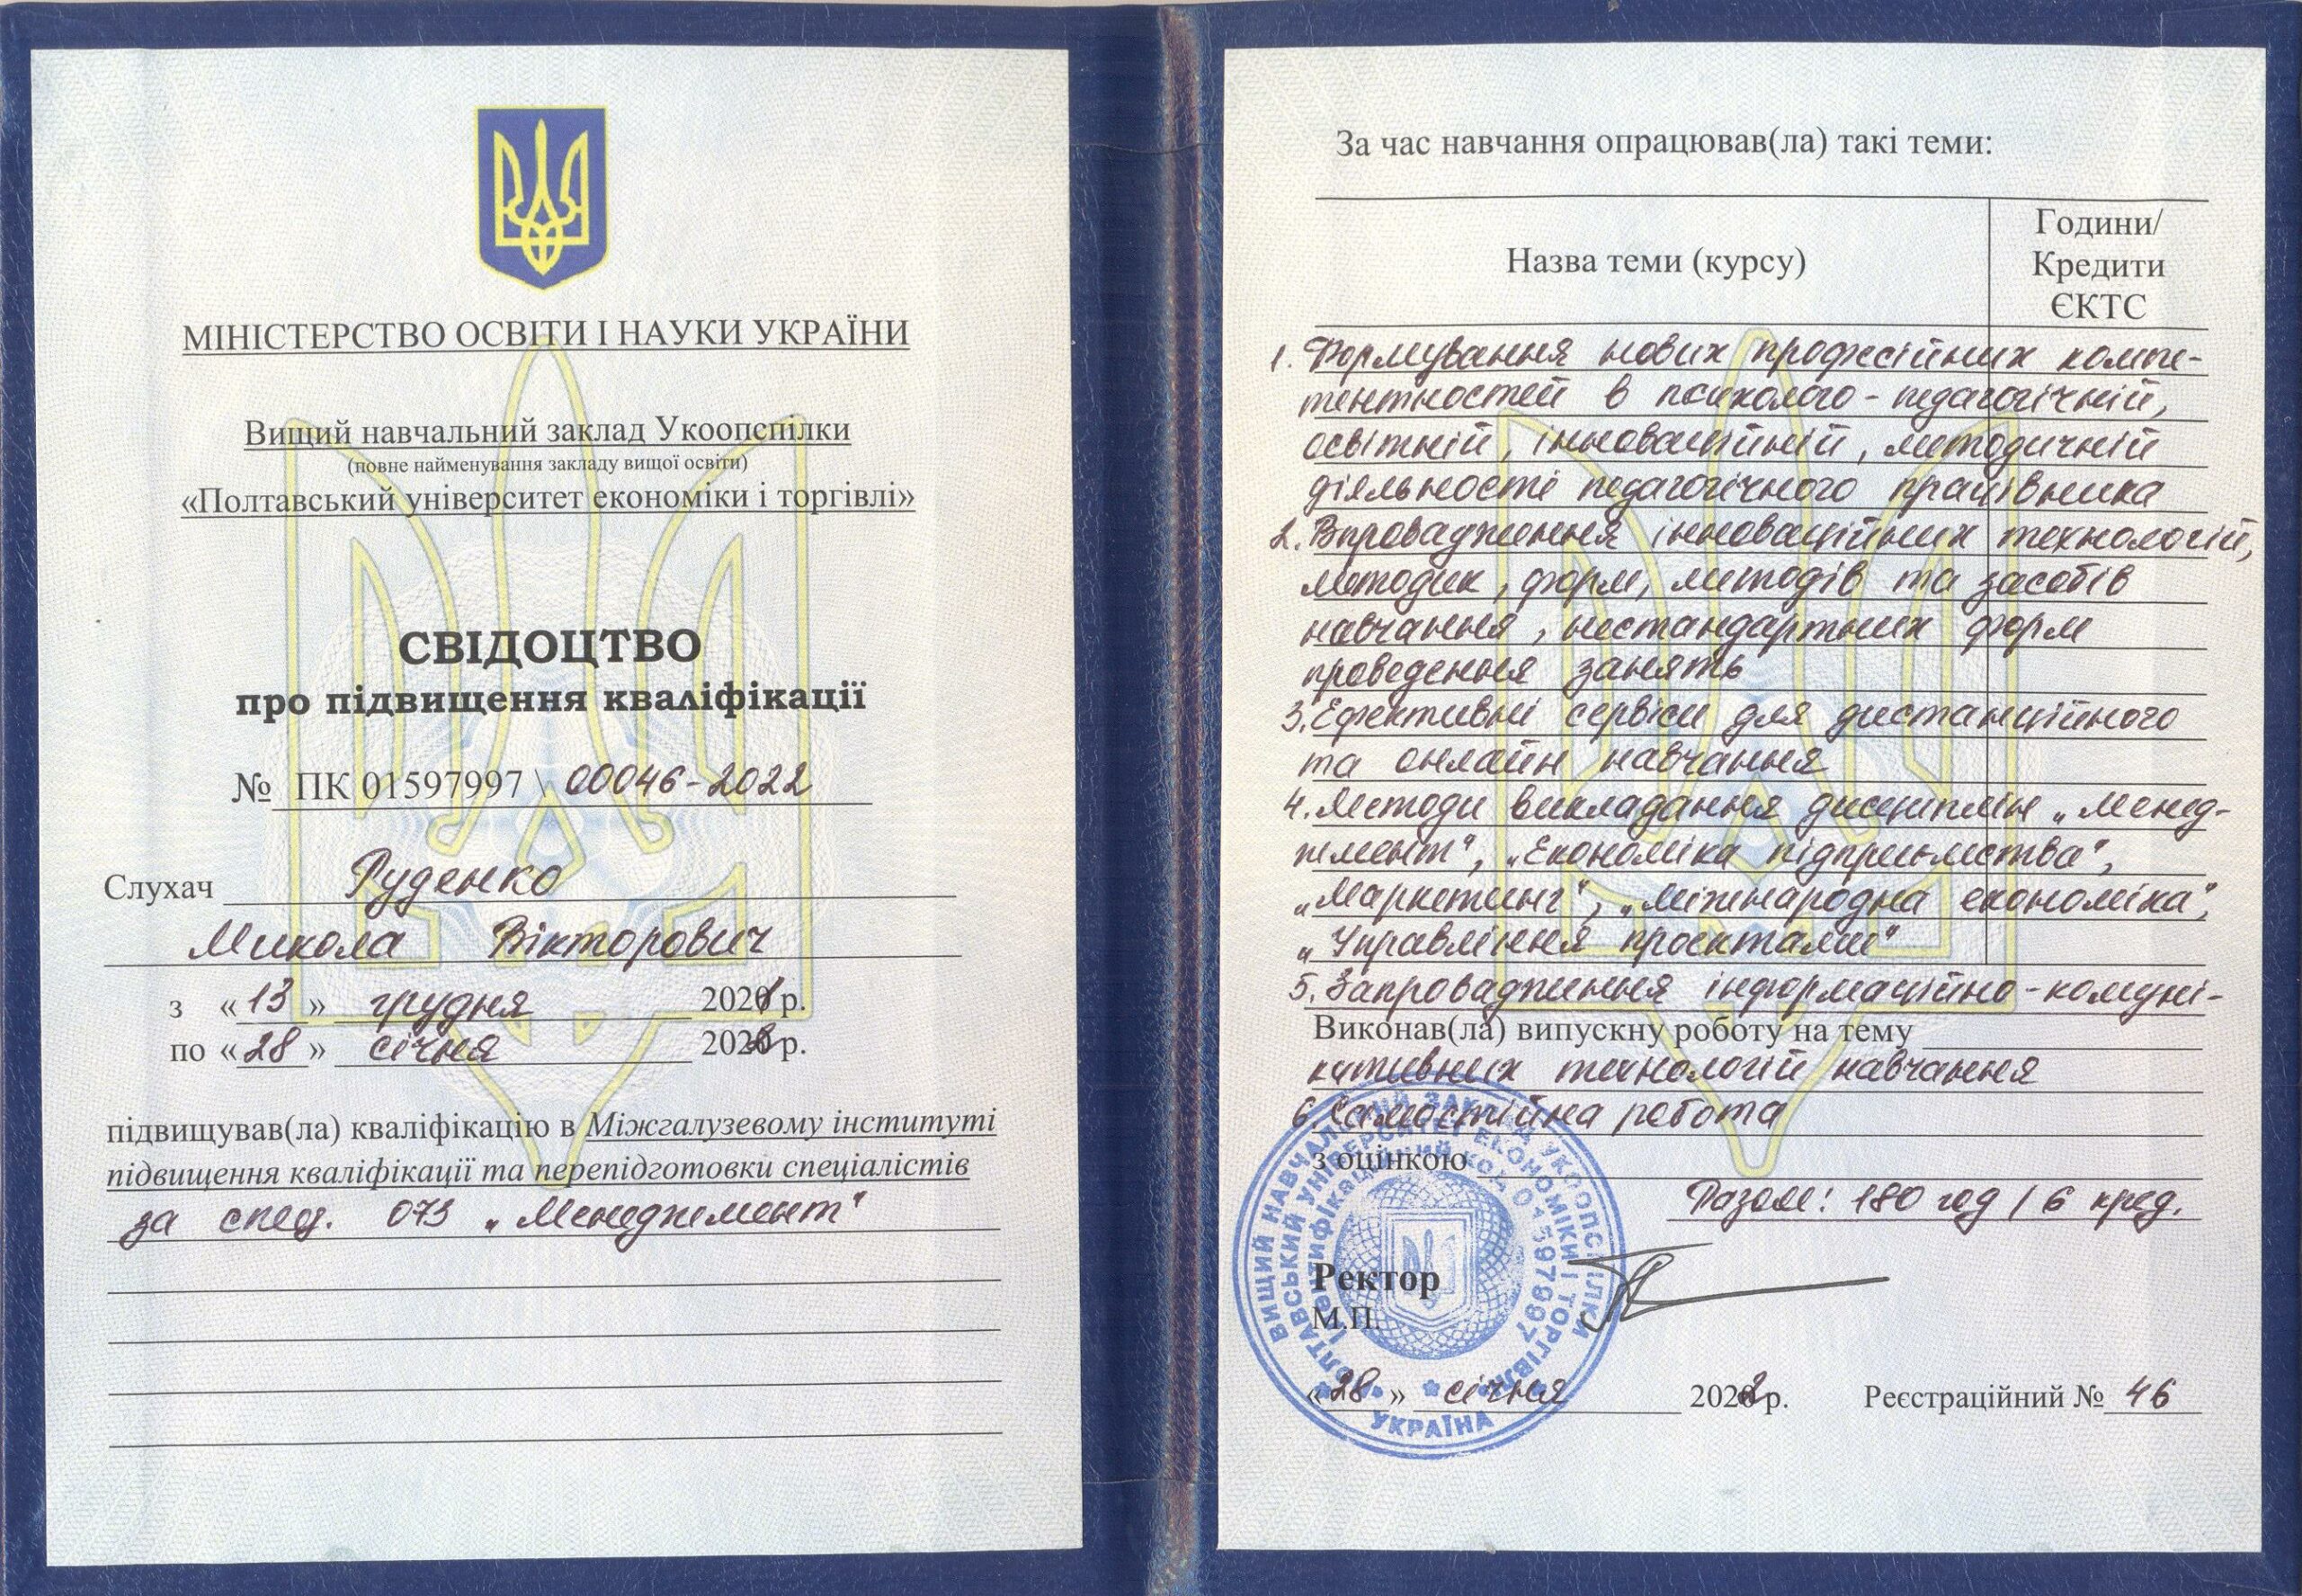 МІНІСТЕРСТВО ОСВІТИ І НАУКИ УКРАЇНИ
Вищий навчальний заклад Укоопспілки
(повне найменування закладу вищої освіти)
«Полтавський університет економіки і торгівлі»
СВІДОЦТВО
про підвищення кваліфікації
№ ПК 01597997 \ 00046-2022
Слухач Руденко
Микола Вікторович
з «13» грудня 2021 р.
по «28» січня 2022 р.
підвищував(ла) кваліфікацію в Міжгалузевому інституті
підвищення кваліфікації та перепідготовки спеціалістів
за спец. 073 „Менеджмент"
За час навчання опрацював(ла) такі теми:
Назва теми (курсу)
Години/
Кредити
ЄКТС
1. Формування нових професійних компе-
тентностей в психолого-педагогічній,
освітній, інноваційній, методичній
діяльності педагогічного працівника
2. Впровадження інноваційних технологій,
методик, форм, методів та засобів
навчання, нестандартних форм
проведення занять
3. Ефективні сервіси для дистанційного
та онлайн навчання
4. Методи викладання дисциплін „Менед-
жмент", „Економіка підприємства",
„Маркетинг", „Міжнародна економіка",
„Управління проектами"
5. Запровадження інформаційно-комуні-
Виконав(ла) випускну роботу на тему
кативних технологій навчання
6. Самостійна робота
з оцінкою
Разом: 180 год / 6 кред.
Ректор
М.П.
«28» січня 2022 р. Реєстраційний № 46
ВИЩИЙ НАВЧАЛЬНИЙ ЗАКЛАД УКООПСПІЛКИ
ПОЛТАВСЬКИЙ УНІВЕРСИТЕТ ЕКОНОМІКИ І ТОРГІВЛІ
Ідентифікаційний код 01597997
УКРАЇНА